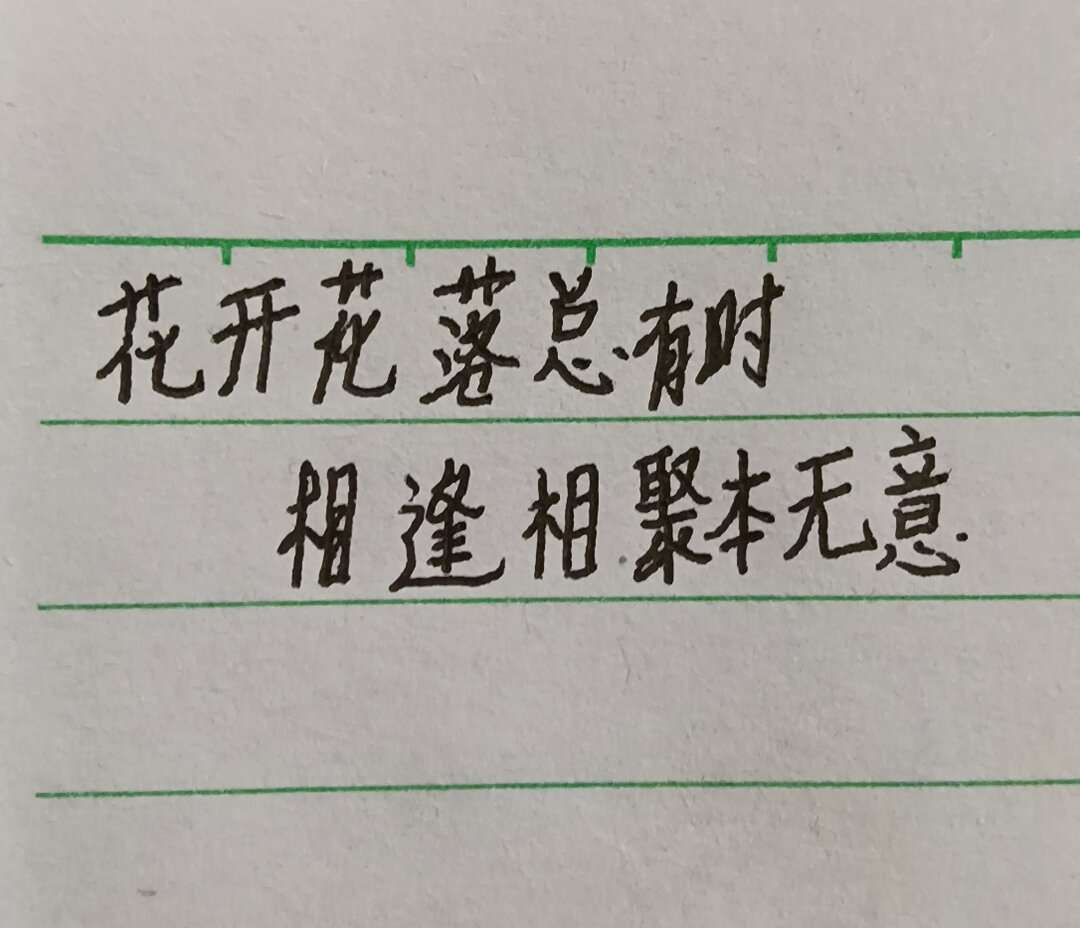 花开花落总有时
相逢相聚本无意